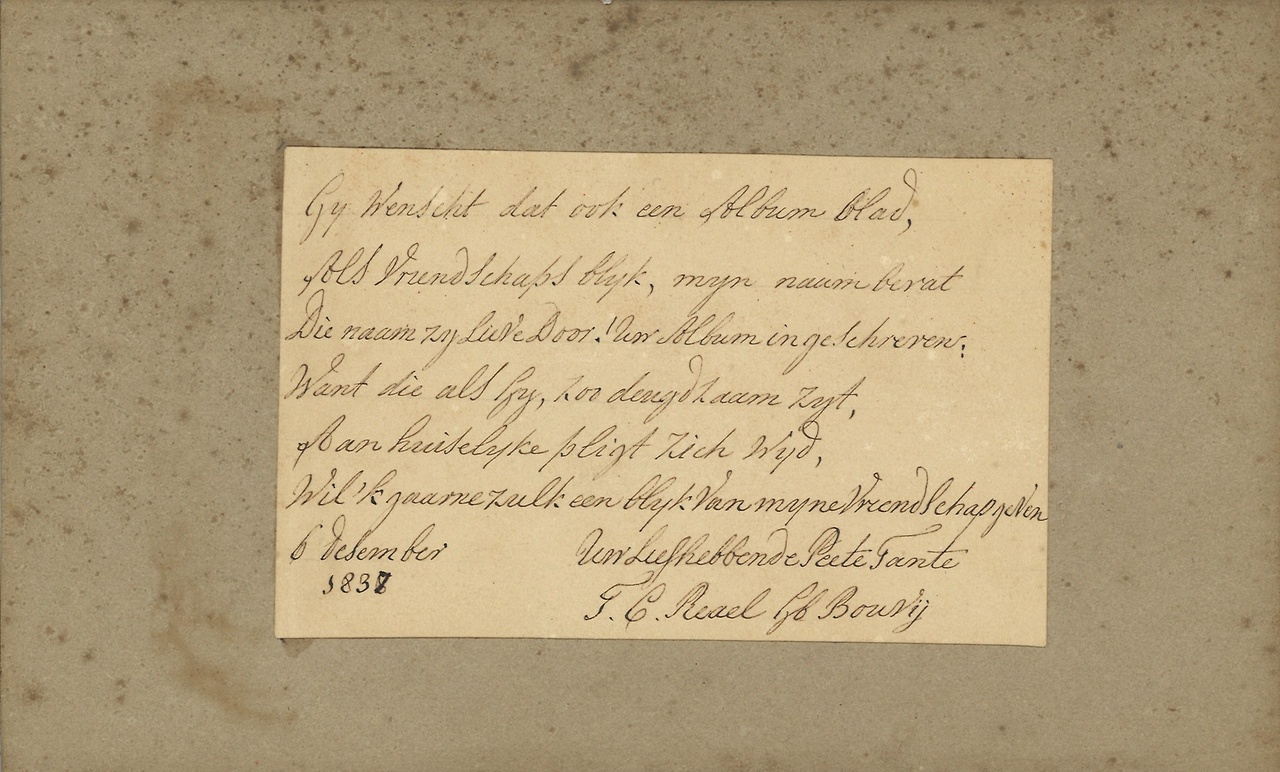 Gy Wenscht dat ook een Album blad,
Als Vriendschaps blyk, myn naam bevat
Die naam zy Lieve Door! Uw Album ingeschreven;
Want die als Gy, zoo deugdzaam zyt,
Aan huiselyke pligt zich Wyd,
Wil 'k gaarne zulk een blyk Van myne Vriendschap geven
6 Desember Uw Liefhebbende Peete Tante
1837 T. C. Reael Gb Bouvij